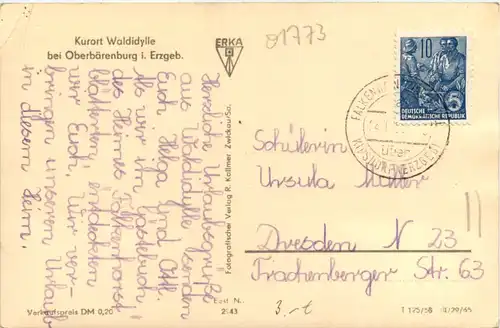 Kurort Waldidylle
bei Oberbärenburg i. Erzgeb.
ERKA
Herzliche Urlaubsgrüße
aus Waldidylle senden
Euch Helga und Ott.
Als wir im Gastebuch
des Heimes Falkenhorst
blätterten, entdeckten
wir Euch, Wir ver-
bringen unseren Urlaub
in diesem Heim.
Verkaufspreis DM 0,20
Fotografischer Verlag R. Kallmer Zwickau/Sa.
Best. N.
2943
01773
10
DEUTSCHE
DEMOKRATISCHE REPUBLIK
5
FALKENHAIN
über
KIPSDORF (ERZGEB)
Schülerin
Ursula
Dresden N 23
Trachenberger Str. 63
3.-